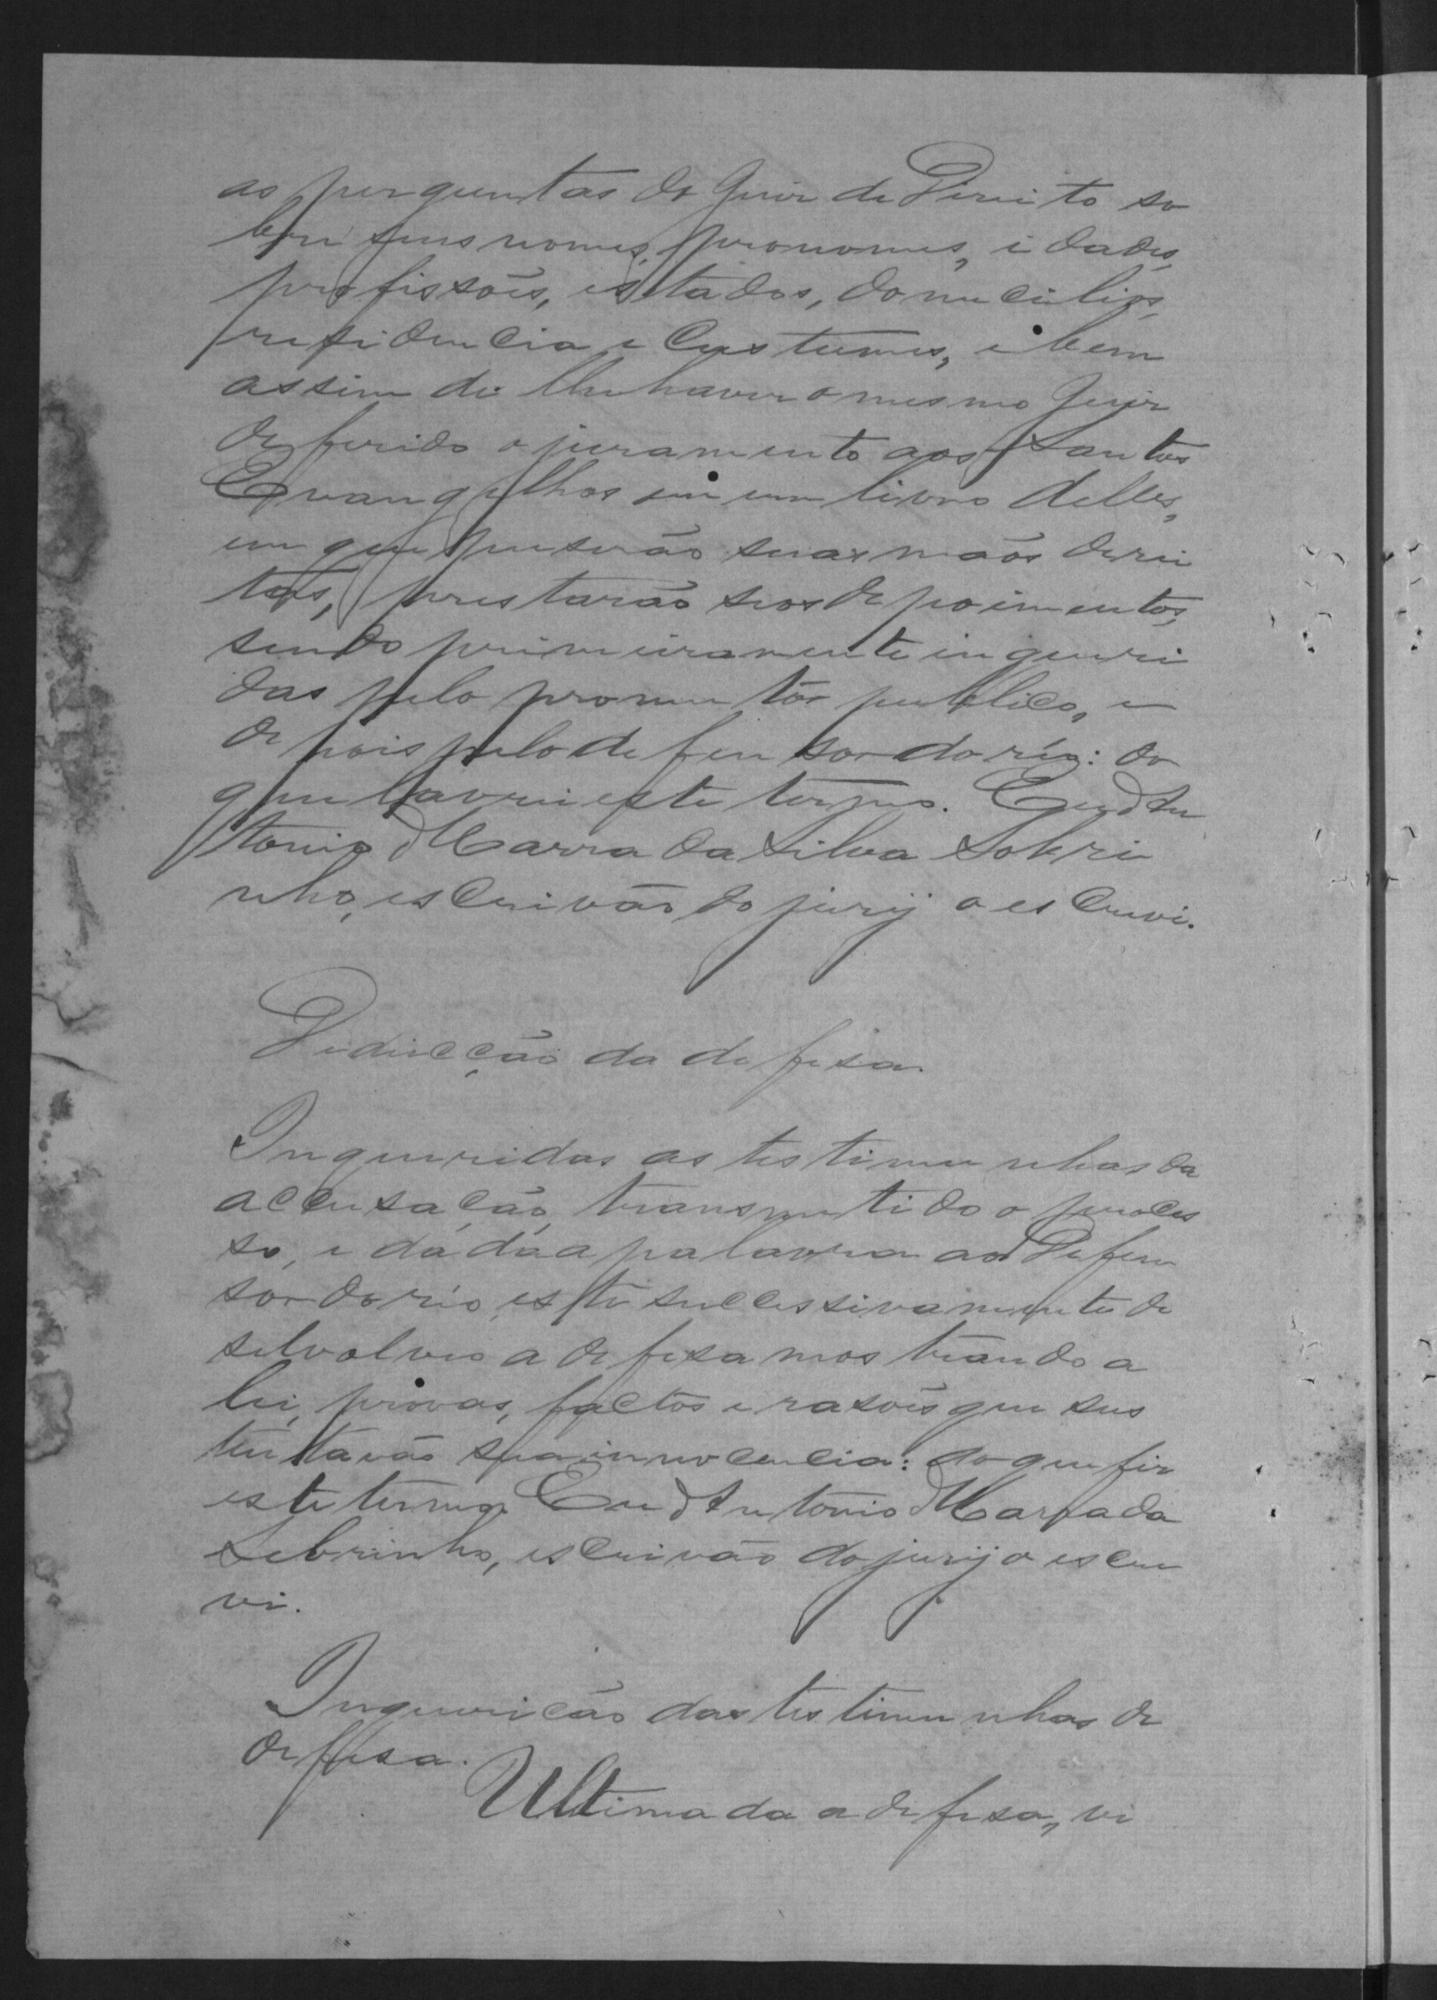 as perguntas do Juiz de Direito so
bre seus nomes, pronomes, idades,
profissões, estados, domucilios,
residencia e custumes, e bem
assim de lhe haver o mesmo Juiz
deferido o juramento aos Santos
Evangelhos em um livro delles,
em que puserão suas mãos direi
tas, prestarão seos depoimentos,
sendo primeiramente inqueri
das pelo promutor publico, e
depois pelo defensor do réo: do
que lavrei este termo. Eu An
tonio Marra da Silva Sobri
nho, escrivão do jury o escrevi.
Deducção da defesa.
Inqueridas as testimunhas da
accusação, transmutido o proces
so, e dáda a palavra ao Defen
sor do réo, este successivamente de
selvolveo a defesa mostrando a
lei, provas, factos e rasões que sus
tentavão sua innocencia: do que fiz
este termo. Eu Antonio Marra da
Sobrinho, escrivão do jury o escre
vi.
Inquerição das testimunhas de
defesa.
Ultimada a defesa, vi